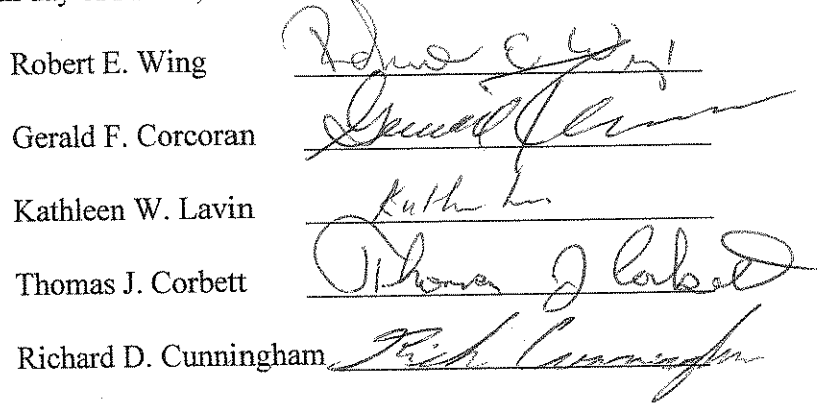 Robert E. Wing Robert E. Wing
Gerald F. Corcoran Gerald
Kathleen W. Lavin
Thomas J. Corbett Thomas J Corbett
Richard D. Cunningham Rich Cunningham